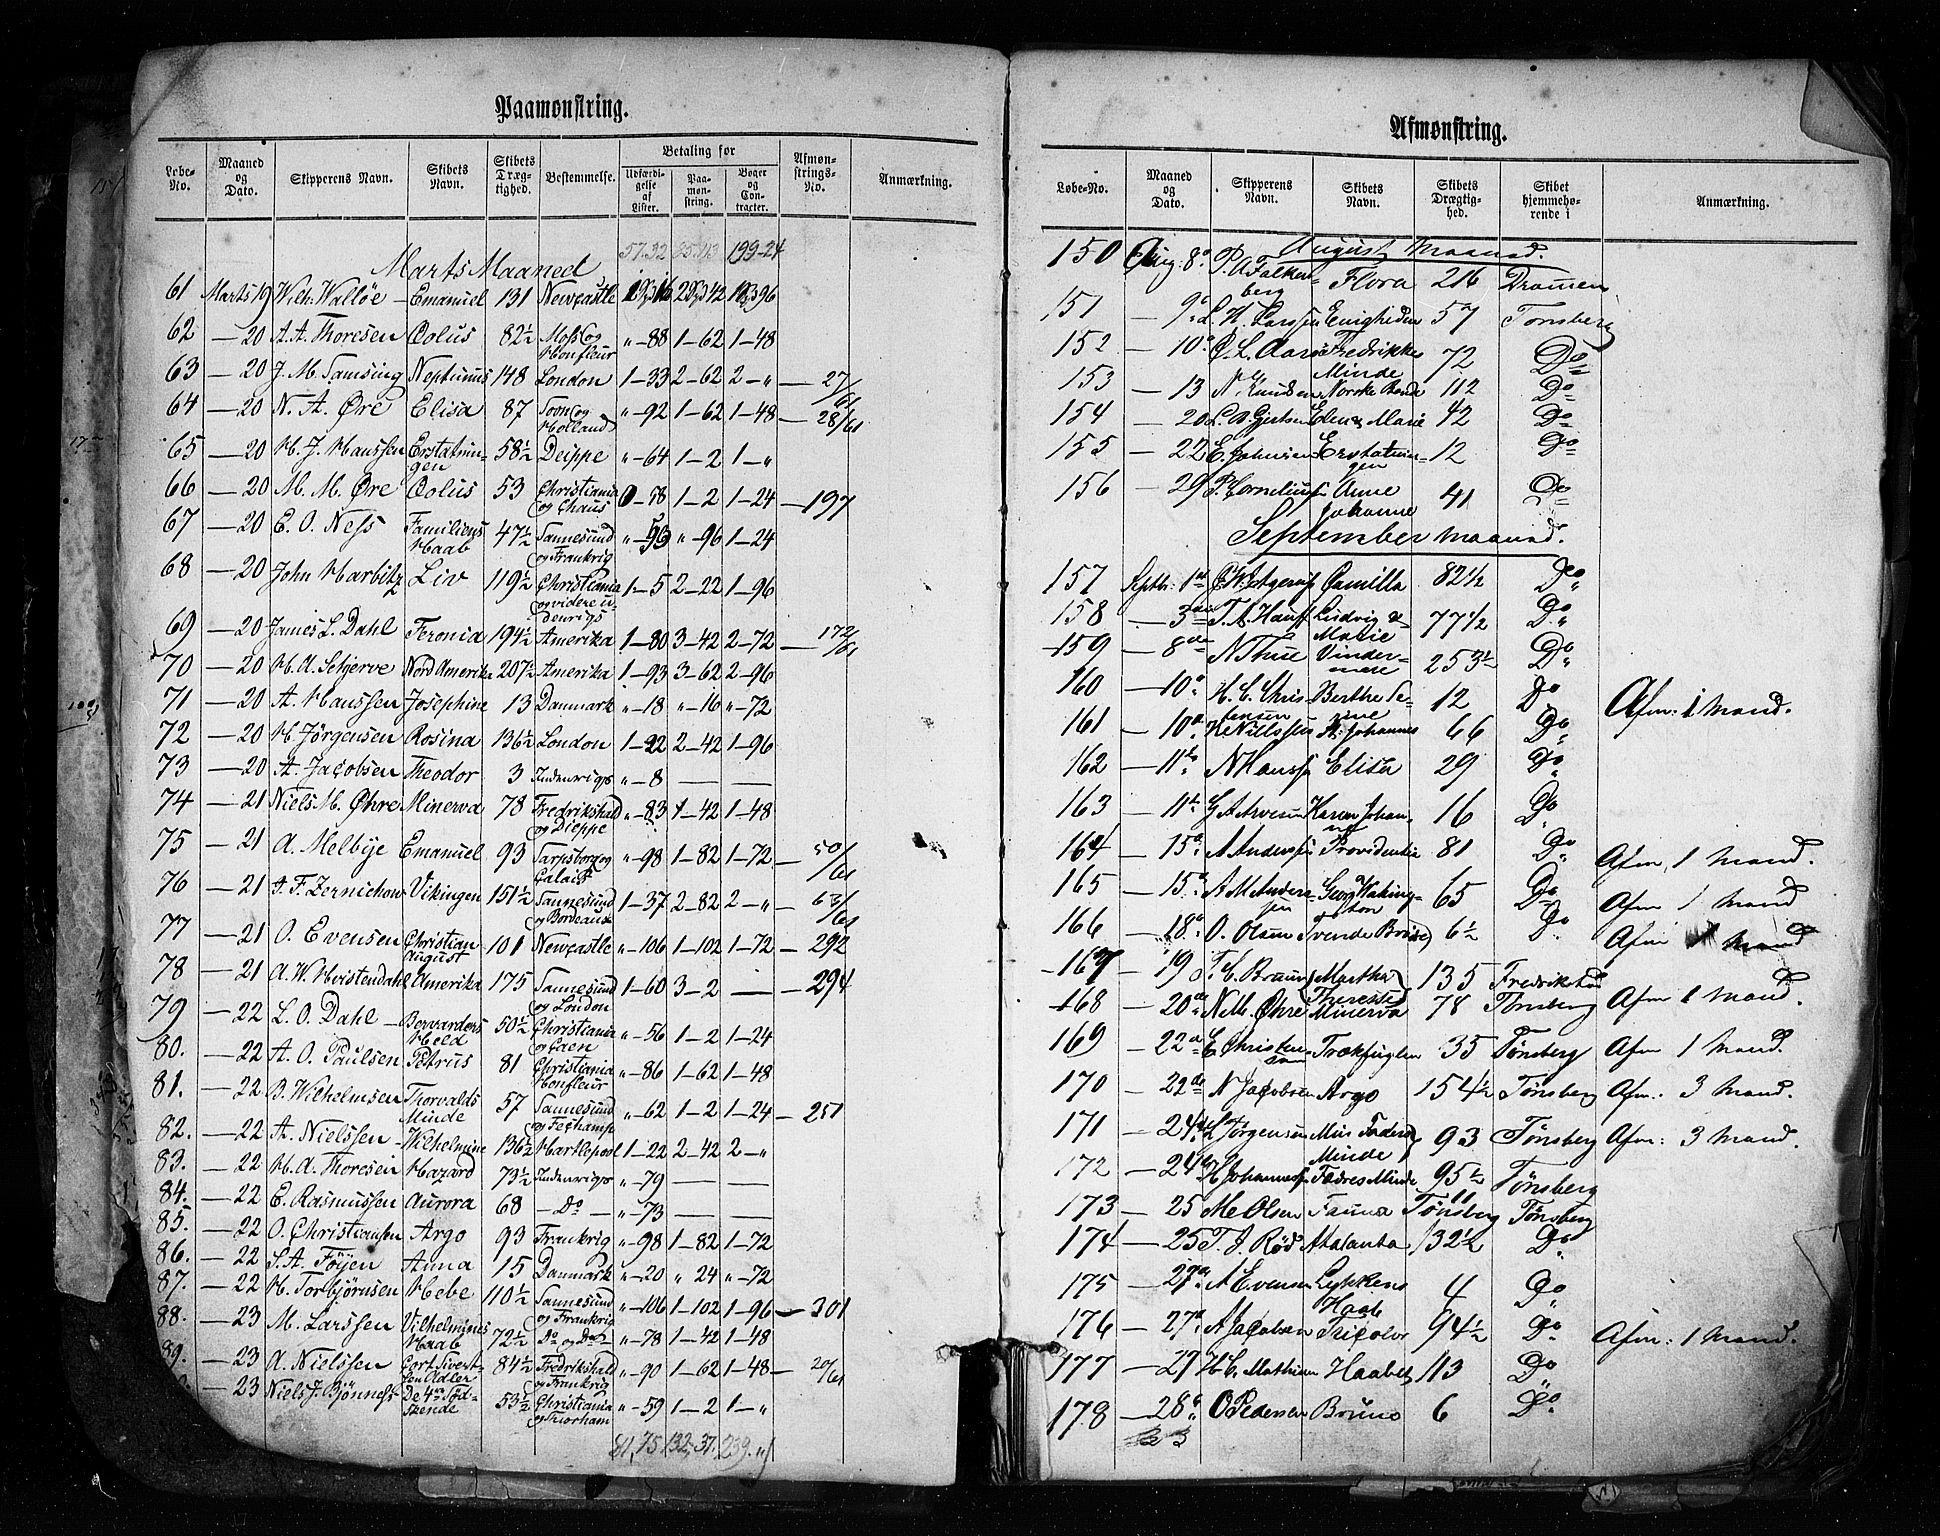 Paamønstring.
Løbe-No. Maaned og Dato. Skipperens Navn. Skibets Navn. Skibets Drægtighed. Bestemmelse. Betaling for Udfærdigelse af Lister. Paamønstring. Bøger og Contracter. Afmønstrings-No. Anmærkning.
57.32 85.113 199-24
Marts Maaned
61 Marts 19 Wilh. Walløe – Emanuel 131 Newcastle
62 — 20 A. A. Thoresen Oolus 82½ Moss og Honfleur „-88 1-62 1-48
63 — 20 J. M. Samsing Neptunus 148 London 1-33 2-62 2-„ — 27/61
64 — 20 N. A. Øre Elisa 87 Soon og Holland „-92 1-62 1-48 — 28/61
65 — 20 H. J. Hanssen Erstatningen 58½ Deippe „-64 1-2 1-„
66 — 20 M. M. Øre Oolus 53 Christiania og Chaus 0-58 1-2 1-24 — 197
67 — 20 E. O. Ness Familiens Haab 47½ Sannesund og Frankrig „-53 „-96 1-24
68 — 20 John Harbitz Liv 119½ Christiania og videre udenrigs 1-5 2-22 1-96
69 — 20 James L. Dahl Feronia 194½ Amerika 1-80 3-42 2-72 — 172/61
70 — 20 H. A. Selgerve Nord Amerika 207½ Amerika 1-93 3-62 2-96
71 — 20 A. Hanssen Josephine 13 Danmark „-18 „-16 „-72
72 — 20 H Jörgensen Rosina 136½ London 1-22 2-42 1-96
73 — 20 A. Jacobsen Theodor 3 Indenrigs „-8 — —
74 — 21 Niels M. Øhre Minerva 78 Fredrikshald og Dieppe „-83 1-42 1-48
75 — 21 A. Melbye Emanuel 93 Sarpsborg og Calais „-98 1-82 1-72 — 50/61
76 — 21 J. F. Zernichow Vikingen 151½ Sannesund og Bordeaux 1-37 2-82 2-„ — 63/61
77 — 21 O. Evensen Christian August 101 Newcastle „-106 1-102 1-72 — 292
78 — 21 A. W. Hvistendahl Amerika 175 Sannesund og London 1-60 3-2 — — 294
79 — 22 L. O. Dahl – Børvarders Held 50½ Christiania og Caen „-56 1-2 1-24
80. — 22 A. O. Paulsen Petrus 81 Christiania Honfleur „-86 1-62 1-48
81. — 22 B. Wilhelmsen Thorvalds Minde 57 Sannesund og Fechamp „-62 1-2 1-24 — 251
82. — 22 A. Nielssen – Wilhelmine 136½ Hartlepool 1-22 2-42 2-„
83. — 22 H. A. Thoresen Hazard 73½ Indenrigs „-79 — —
84. — 22 E. Rasmussen Aurora 68 – Do – „-73 — —
85. — 22 O. Christiansen Argo 93 Frankrig „-98 1-82 1-72
86. — 22 S. A. Föyen Anna 15 Danmark „-20 „ 24 „-72
87. — 22 H. Torbjörnsen Hebe 110½ Sannesund og Frankrig „-106 1-102 1-96 — 301
88. — 23 M. Larssen Vilhelmines Haab 72½ Do og Do „-78 1-42 1-48
89. — 23 A. Nielssen Cort Sivertsen Adler 84½ Fredrikshald og Frankrig „-90 1-62 1-48 — 20/61
— 23 Niels J. Bjönness De 4re Södskende 53½ Christiania og Schorham „-59 1-2 1-„
81,75 132,37. 239.„
Afmønstring.
Løbe-No. Maaned og Dato. Skipperens Navn. Skibets Navn. Skibets Drægtighed. Skibet hjemmehørende i Anmærkning.
August Maaned.
150 Aug: 8de P. A Falkenberg – Flora 216 Dramen
151 — 9de L. H. Larssen Enigheden 57 Tonsberg
152 — 10de O. L. Aas Fredrikkes Minde 72 Do
153 — 13 N. Knudsen Norske Bonde 112 Do
154 — 20 L. B. Gjertsen Elen & Marie 42 Do
155 — 22 E. Johnsen Erstatningen 12 Do
156 — 29 P. Corneliuss Anne Johanne 41 Do
September Maaned.
157 Septbr: 1ste Camilla 82½ Do
158 — 3die T. A. Hauff Ludvig & Marie 77½ Do
159 — 8de N Thue Vindermere 253½ Do
160 — 10de H. C. Christensen Berthe Serine 12 Do Afm: 1 Mand.
161 — 10de St. Johannes 66 Do
162 — 11te N Hanss Elisa 29 Do
163 — 11te G A Arvesen Karen Johanne 16 Do
164 — 15de A Anderss Providentia 81 Do Afm, 1 Mand.
165 — 15de A M Anderssen Georg Washington 65 Do Afm 1 Mand
166 — 18de O. Olsen Tvende Brødre 6½ Do Afm 1 Mand
167 — 19 F. C. Bruun Martha Therestea 135 Fredrikstad
168 — 20de N M. Øhre Minerva 78 Tönsberg Afm 1 Mand.
169 — 22de E Christensen Trækfuglen 35 Tønsberg Afm 1 Mand.
170 — 22de N Jacobsen Argo 154½ Tönsberg Afm: 3 Mand.
171 — 24de L Jørgensen Min Faders Minde 93 Tönsberg Afm: 3 Mand.
172 — 24de H Johanness Fædres Minde 95½ Tønsberg
173 — 25 M E Olsen Fauna 11 Tønsberg Tønsberg
174 — 25 T. J. Rød Atalanta 132½ Do
175 — 27de A Evensen Lykkens Haab 4 Do
176 — 27de A Jacobsen Tricolor 94½ Do Afm: 1 Mand.
177 — 27 H. C. Mathisen Haabet 113 Do
178 — 28de O Pedersen Bruno 6 Do